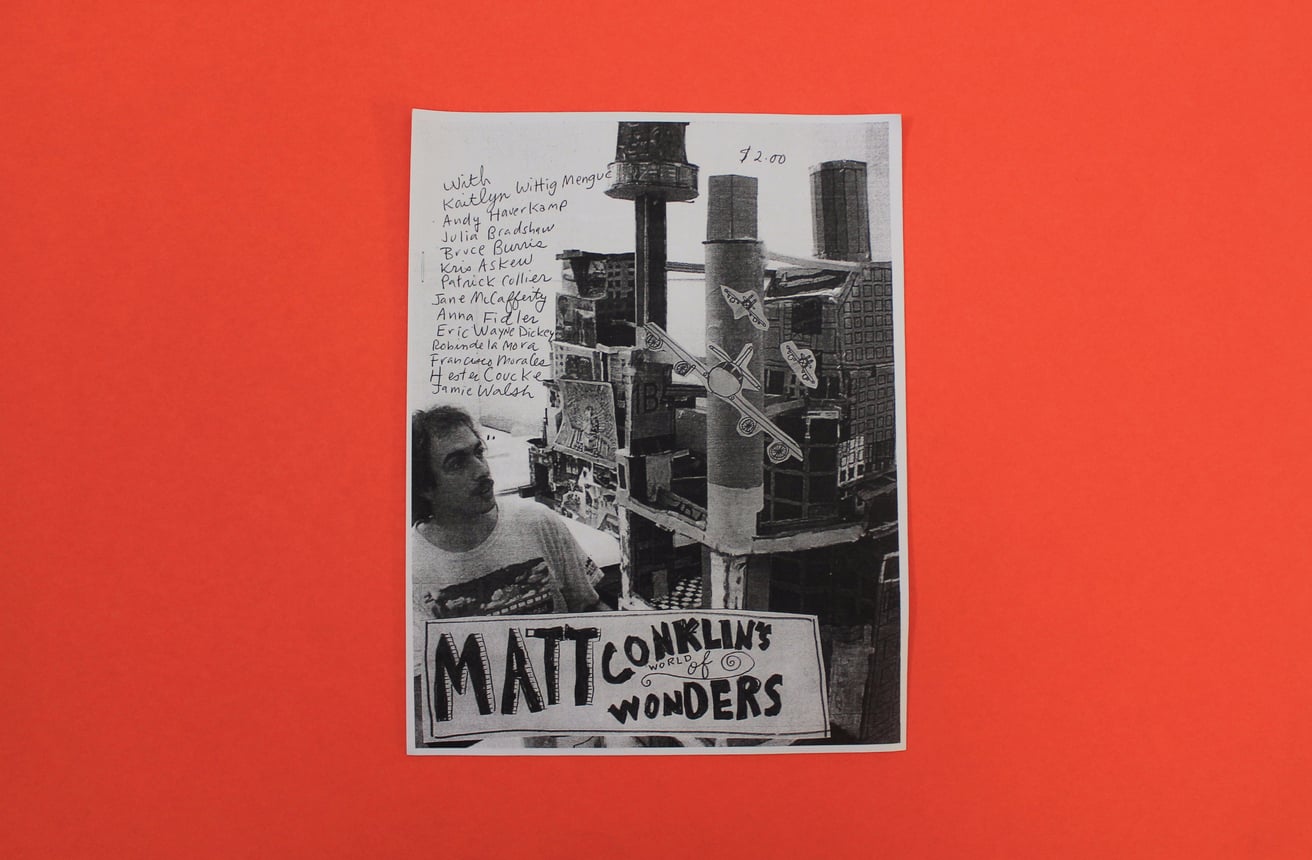 $2.00
With
Kaitlyn Wittig Menguc
Andy Haverkamp
Julia Bradshaw
Bruce Burris
Kris Askew
Patrick Collier
Jane McCafferty
Anna Fidler
Eric Wayne Dickey
Robin de la Mora
Francisco Morales
Hester Coucke
Jamie Walsh
MATT CONKLIN'S
WORLD of
WONDERS